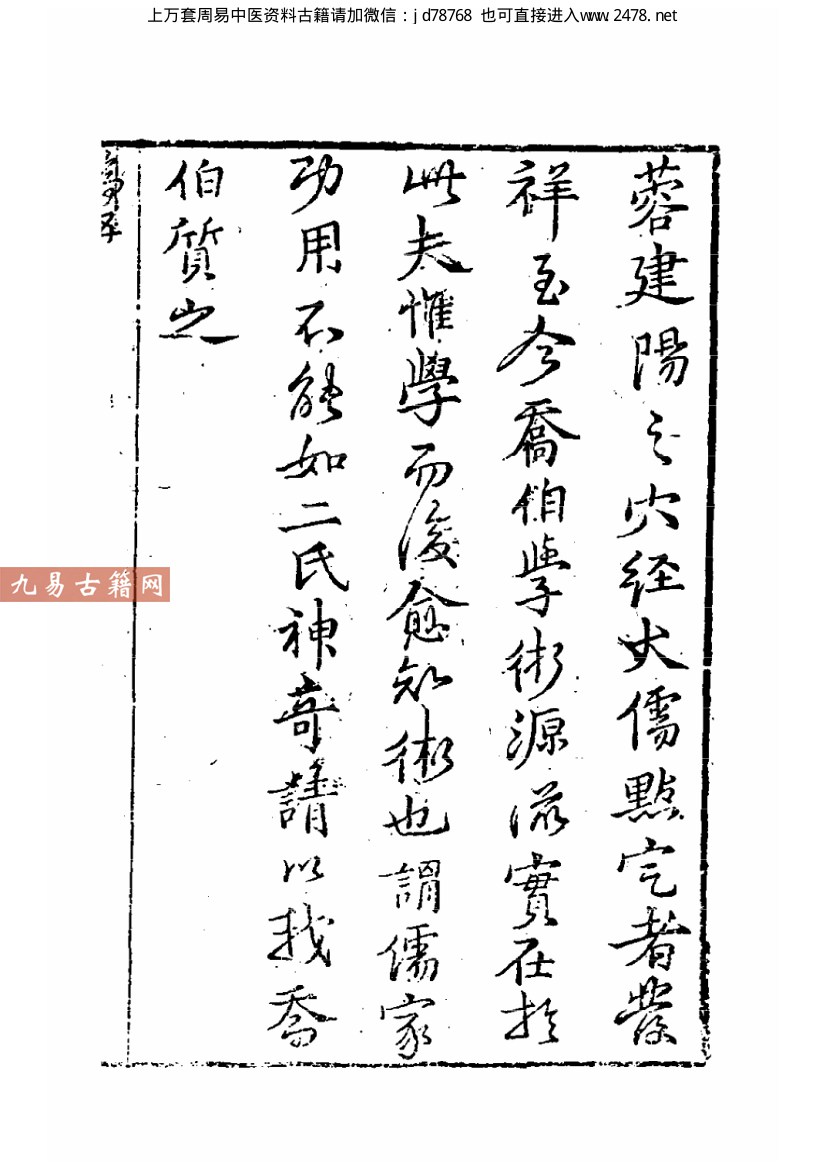 上万套周易中医资料古籍请加微信：jd78768 也可直接进入www.2478.net
蓉建陽之穴经大儒點定者發
祥至今喬伯學術源流實在於
此夫惟學而後愈知術也謂儒家
功用不能如二氏神奇請以我喬
伯質之
九易古籍网